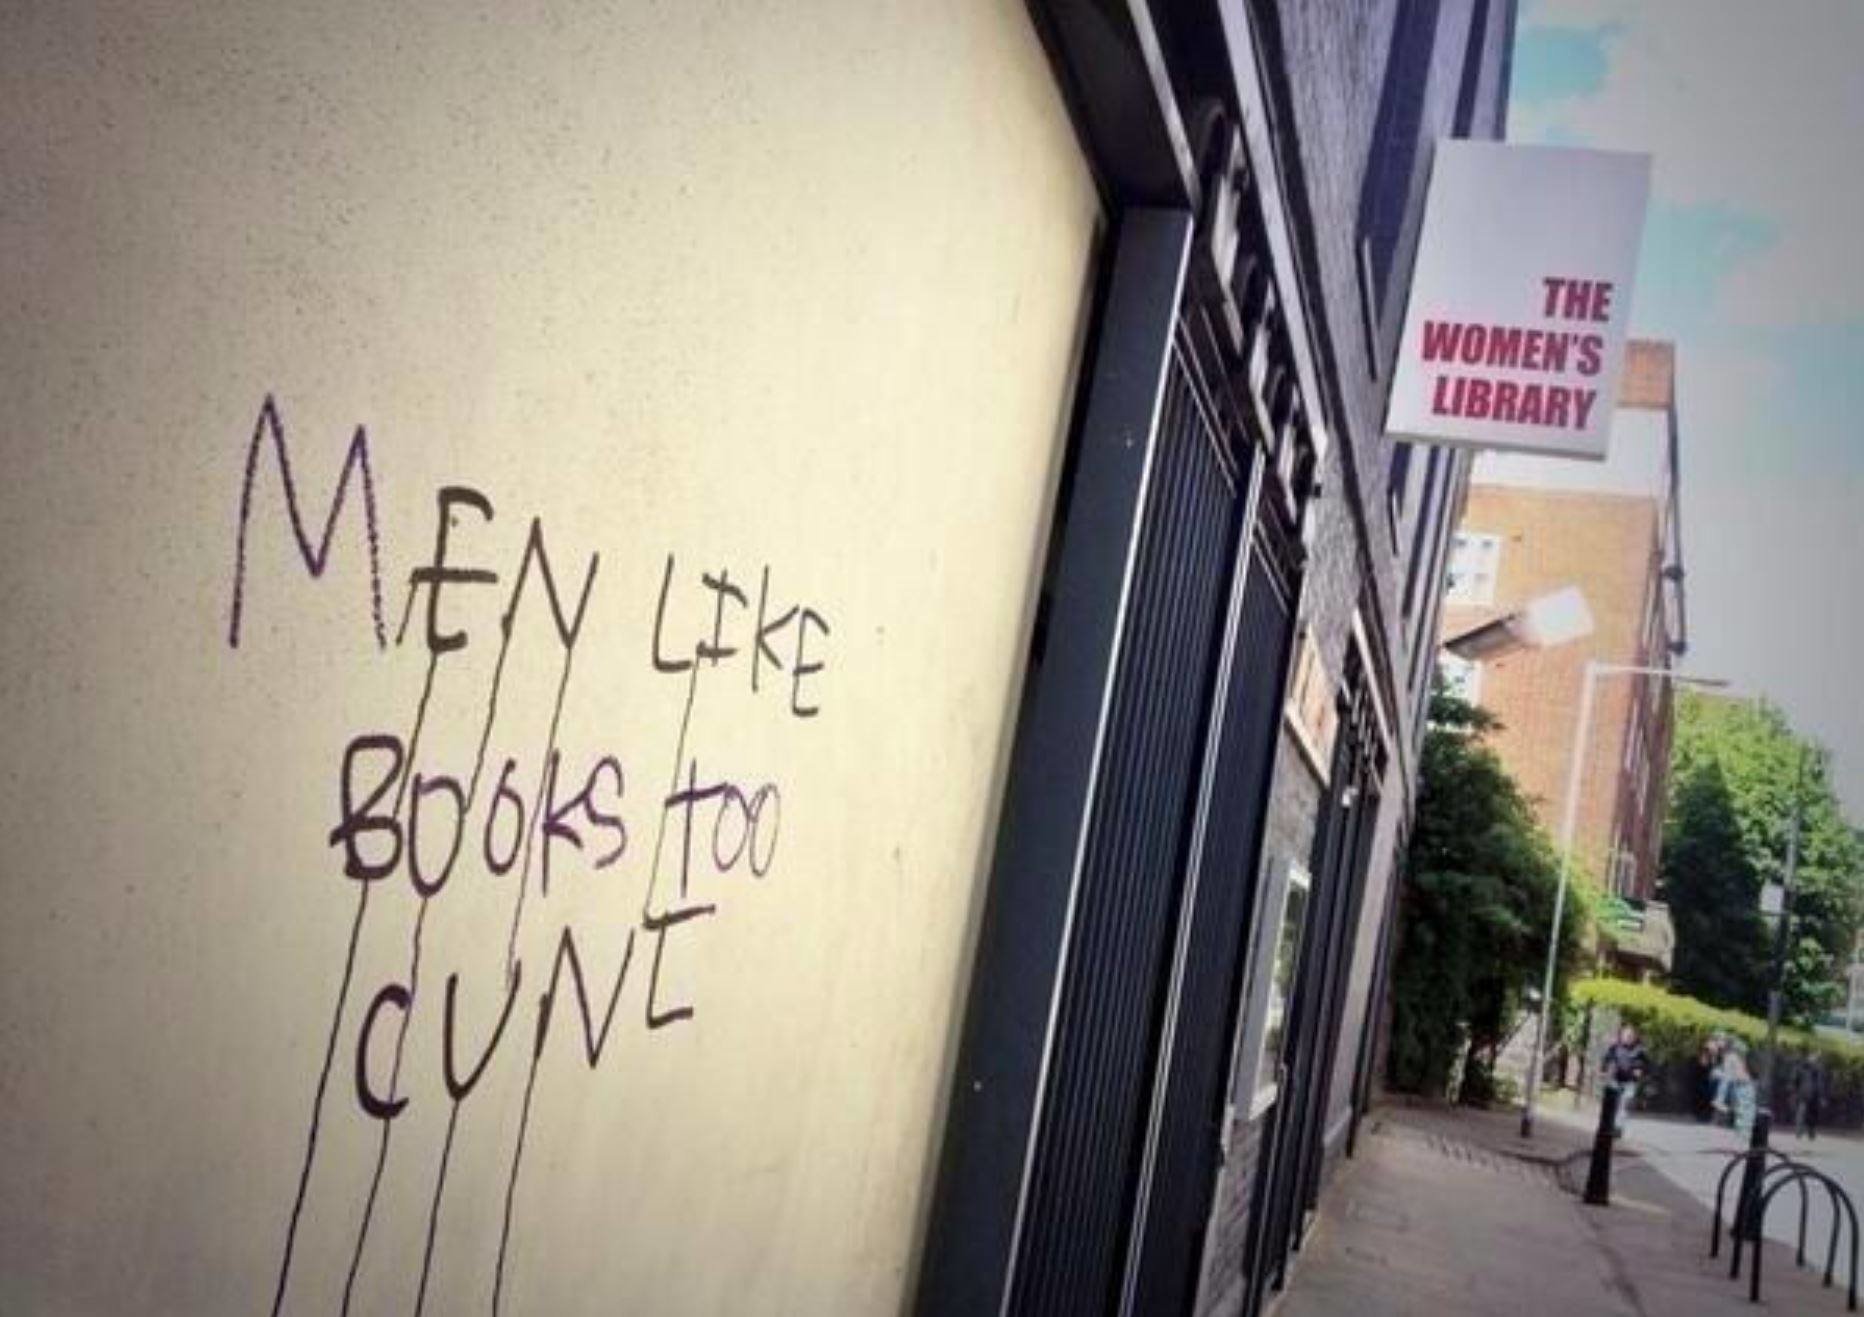 MEN LIKE
BOOKS too
CUNT
THE
WOMEN'S
LIBRARY